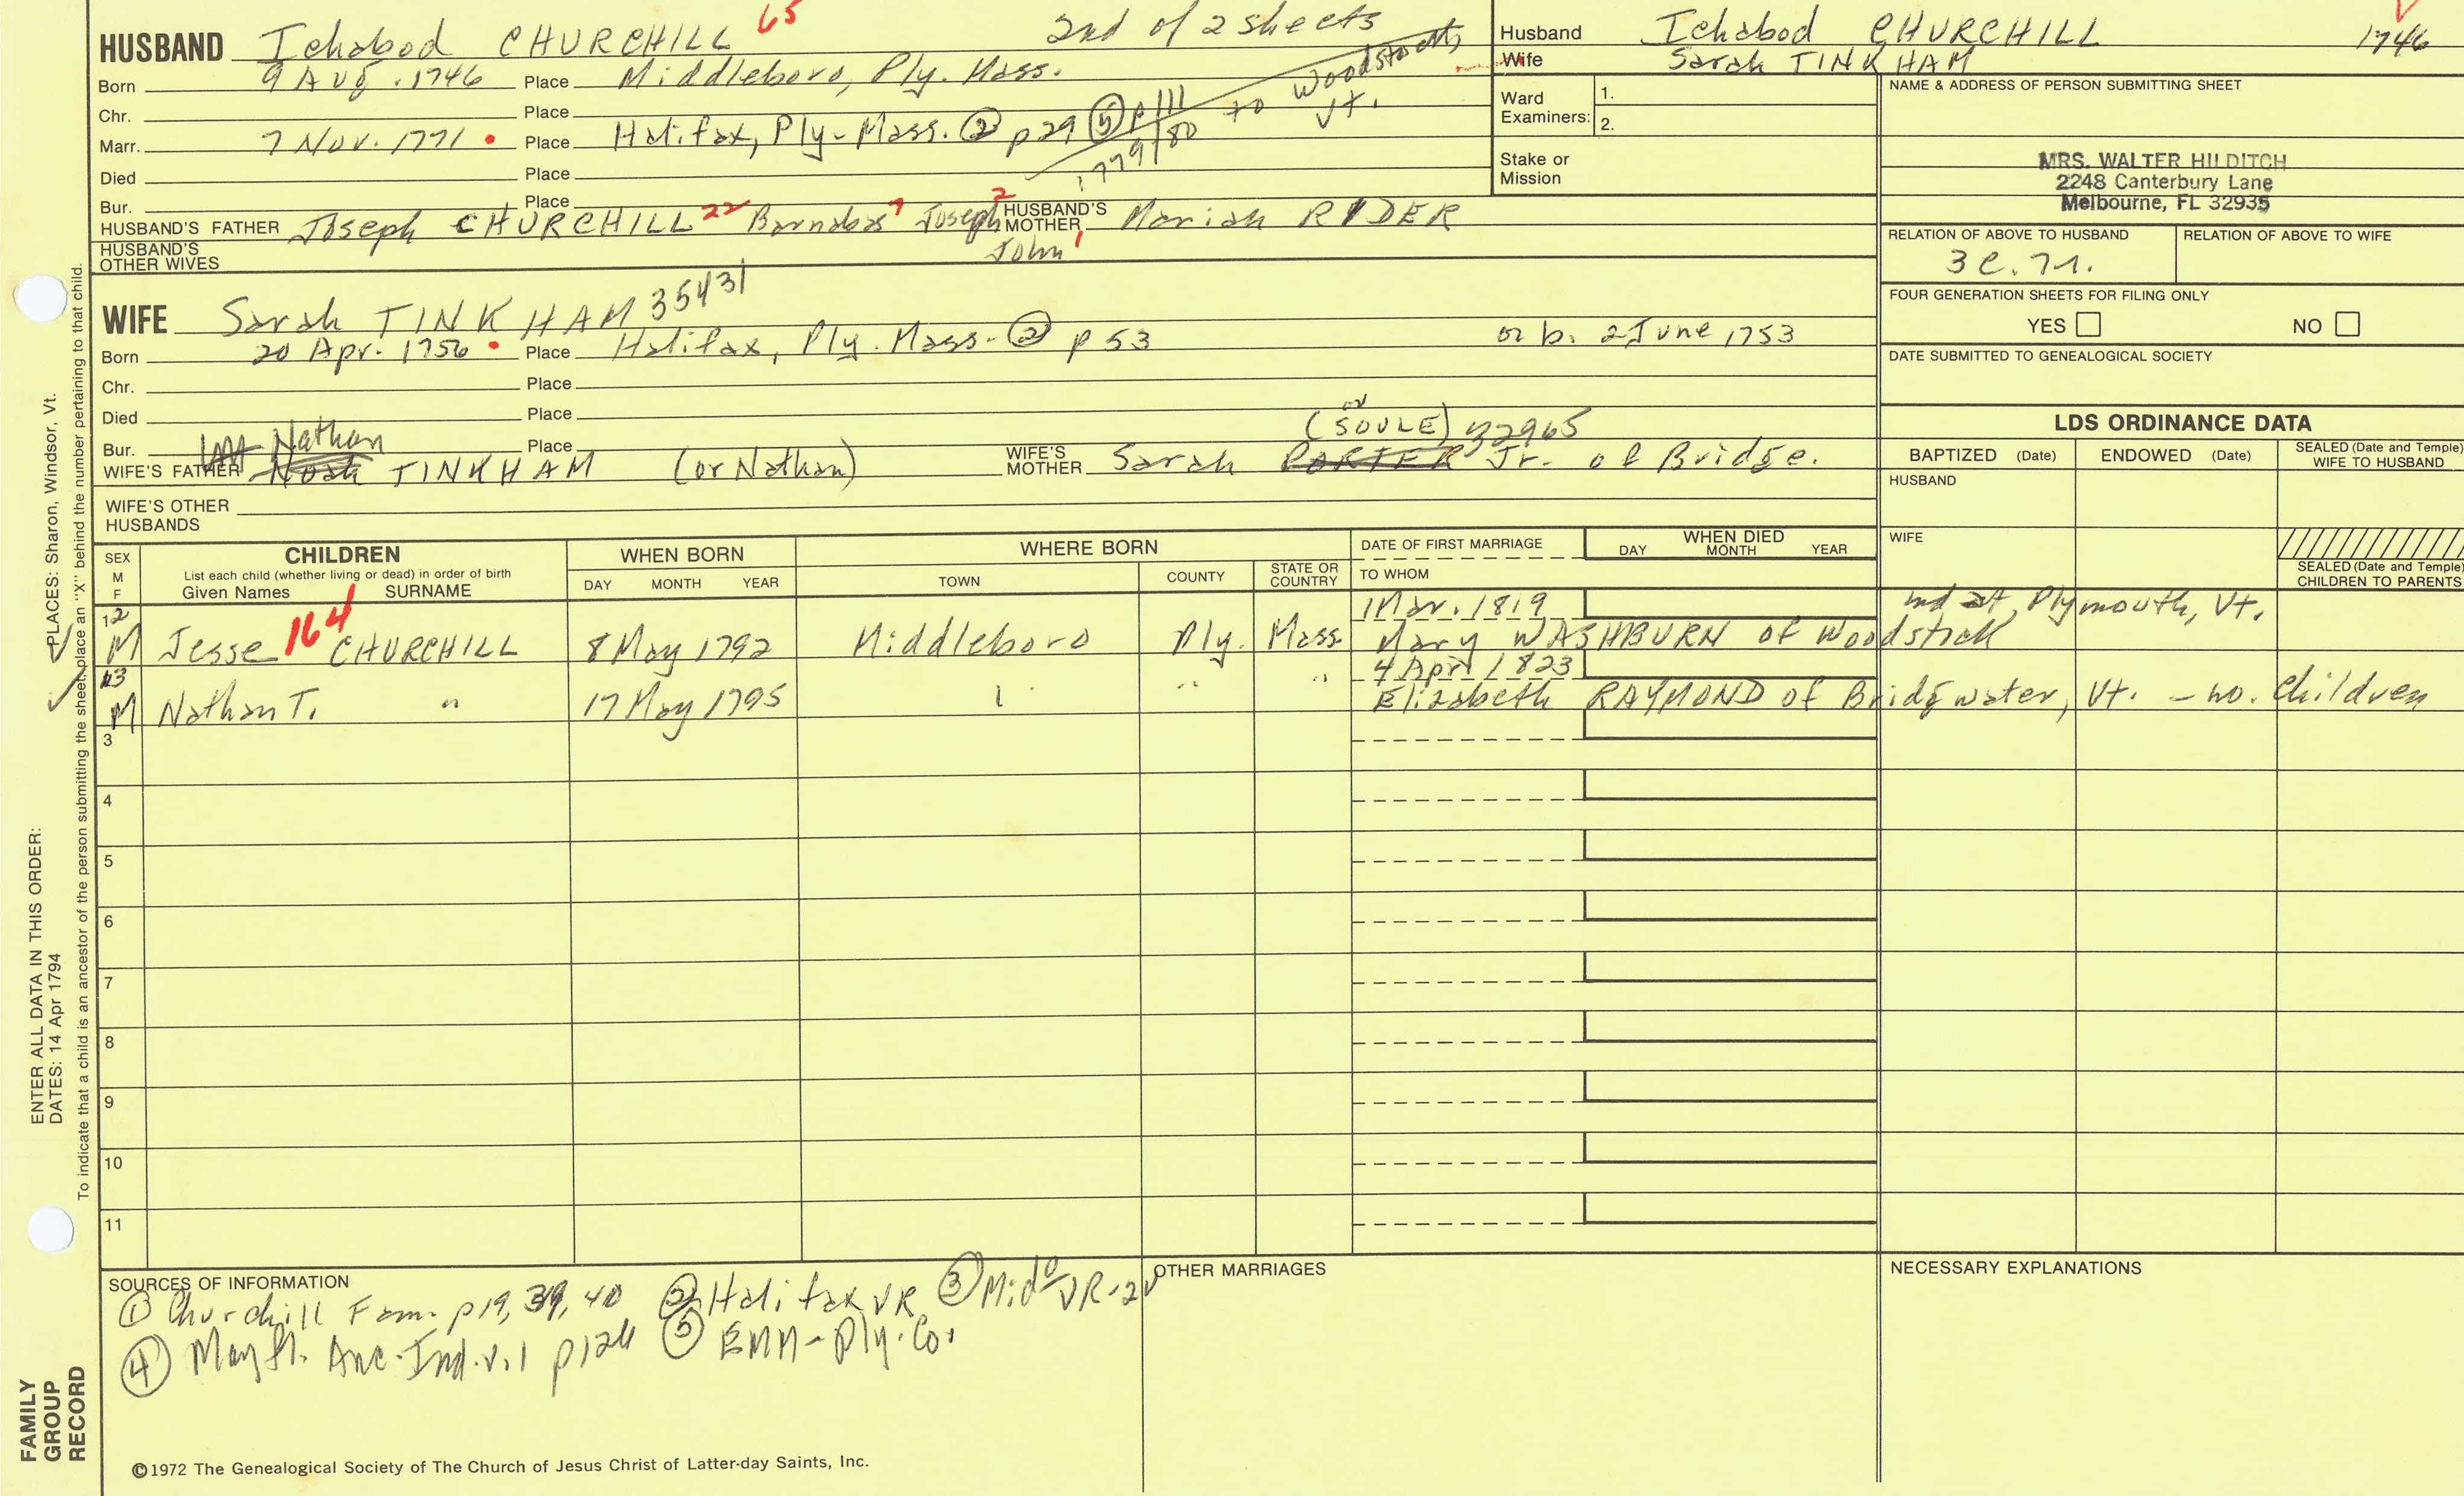 HUSBAND Ichabod CHURCHILL 65 2nd of 2 sheets
Born 9 Aug. 1746 Place Middleboro, Ply. Mass.
Chr. Place
Marr. 7 Nov. 1771 • Place Halifax, Ply-Mass. ② p29 ⑤ p111
1779/80 to Woodstock, Vt.
Died Place
Bur. Place
HUSBAND'S FATHER Joseph CHURCHILL 22 Barnabas 7 Joseph 2 John 1 HUSBAND'S MOTHER Mariah RYDER
HUSBAND'S OTHER WIVES
WIFE Sarah TINKHAM 35431
Born 20 Apr. 1756 • Place Halifax, Ply. Mass. ② p 53 or b. 2 June 1753
Chr. Place
Died Place
Bur. Place
WIFE'S FATHER Nathan Noah TINKHAM (or Nathan) WIFE'S MOTHER Sarah PORTER or (SOULE) 32965 Jr. of Bridge.
WIFE'S OTHER HUSBANDS
Husband Ichabod CHURCHILL 1746
Wife Sarah TINKHAM
Ward Examiners: 1.
2.
Stake or Mission
NAME & ADDRESS OF PERSON SUBMITTING SHEET
MRS. WALTER HILDITCH
2248 Canterbury Lane
Melbourne, FL 32935
RELATION OF ABOVE TO HUSBAND RELATION OF ABOVE TO WIFE
FOUR GENERATION SHEETS FOR FILING ONLY
YES NO
DATE SUBMITTED TO GENEALOGICAL SOCIETY
LDS ORDINANCE DATA
BAPTIZED (Date) ENDOWED (Date) SEALED (Date and Temple) WIFE TO HUSBAND
HUSBAND
WIFE
SEALED (Date and Temple) CHILDREN TO PARENTS
SEX M F CHILDREN WHEN BORN WHERE BORN DATE OF FIRST MARRIAGE WHEN DIED
List each child (whether living or dead) in order of birth
Given Names SURNAME DAY MONTH YEAR TOWN COUNTY STATE OR COUNTRY TO WHOM DAY MONTH YEAR
12 1 Mar. 1819 md at Plymouth, Vt.
M Jesse 164 CHURCHILL 8 May 1792 Middleboro Ply. Mass. Mary WASHBURN of Woodstick
13 4 Apri 1823
M Nathan T. " 17 May 1795 " " Elizabeth RAYMOND of Bridgwater, Vt. - no. children
3
4
5
6
7
8
9
10
11
SOURCES OF INFORMATION
① Churchill Fam. p19, 39, 40 ② Halifax VR ③ Mido VR-2v
④ Mayfl. Anc. Ind. v.1 ⑤ EMM-Ply. Co.
OTHER MARRIAGES
NECESSARY EXPLANATIONS
©1972 The Genealogical Society of The Church of Jesus Christ of Latter-day Saints, Inc.
FAMILY GROUP RECORD
ENTER ALL DATA IN THIS ORDER:
DATES: 14 Apr 1794
PLACES: Sharon, Windsor, Vt.
To indicate that a child is an ancestor of the person submitting the sheet, place an "X" behind the number pertaining to that child.